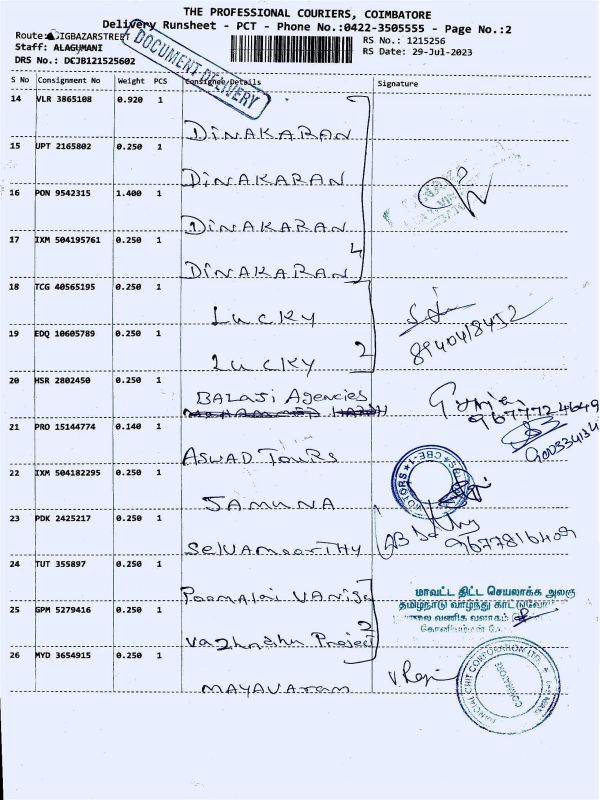 THE PROFESSIONAL COURIERS, COIMBATORE
Delivery Runsheet - PCT - Phone No.:0422-3505555 - Page No.:2
Route: IGBAZARSTREET
Staff: ALAGUMANI
DRS No.: DCJB121525602
DOCUMENT DELIVERY
RS No.: 1215256
RS Date: 29-Jul-2023
S No Consignment No Weight PCS Consignee/Details Signature
14 VLR 3865108 0.920 1
DINAKARAN
15 UPT 2165802 0.250 1
DINAKARAN
16 PON 9542315 1.400 1
DINAKARAN
17 IXM 504195761 0.250 1
DINAKARAN 4
18 TCG 40565195 0.250 1
LUCKY
8940418452
19 EDQ 10605789 0.250 1
LUCKY 2
20 HSR 2802450 0.250 1
BALAJI Agencies
9677724649
21 PRO 15144774 0.140 1
ASWAD TOURS
22 IXM 504182295 0.250 1
MOTORS
CBE-1
JAMUNA
23 PDK 2425217 0.250 1
SELVAMOORTHY
9677816409
24 TUT 355897 0.250 1
மாவட்ட திட்ட செயலாக்க அலகு
தமிழ்நாடு வாழ்ந்து
Poomalai VANiga
25 GPM 5279416 0.250 1
வணிக வளாகம்
Vazhndhu Project 2
26 MYD 3654915 0.250 1
CHIT CORPORATION LTD.
COIMBATORE
MAYAVARAM